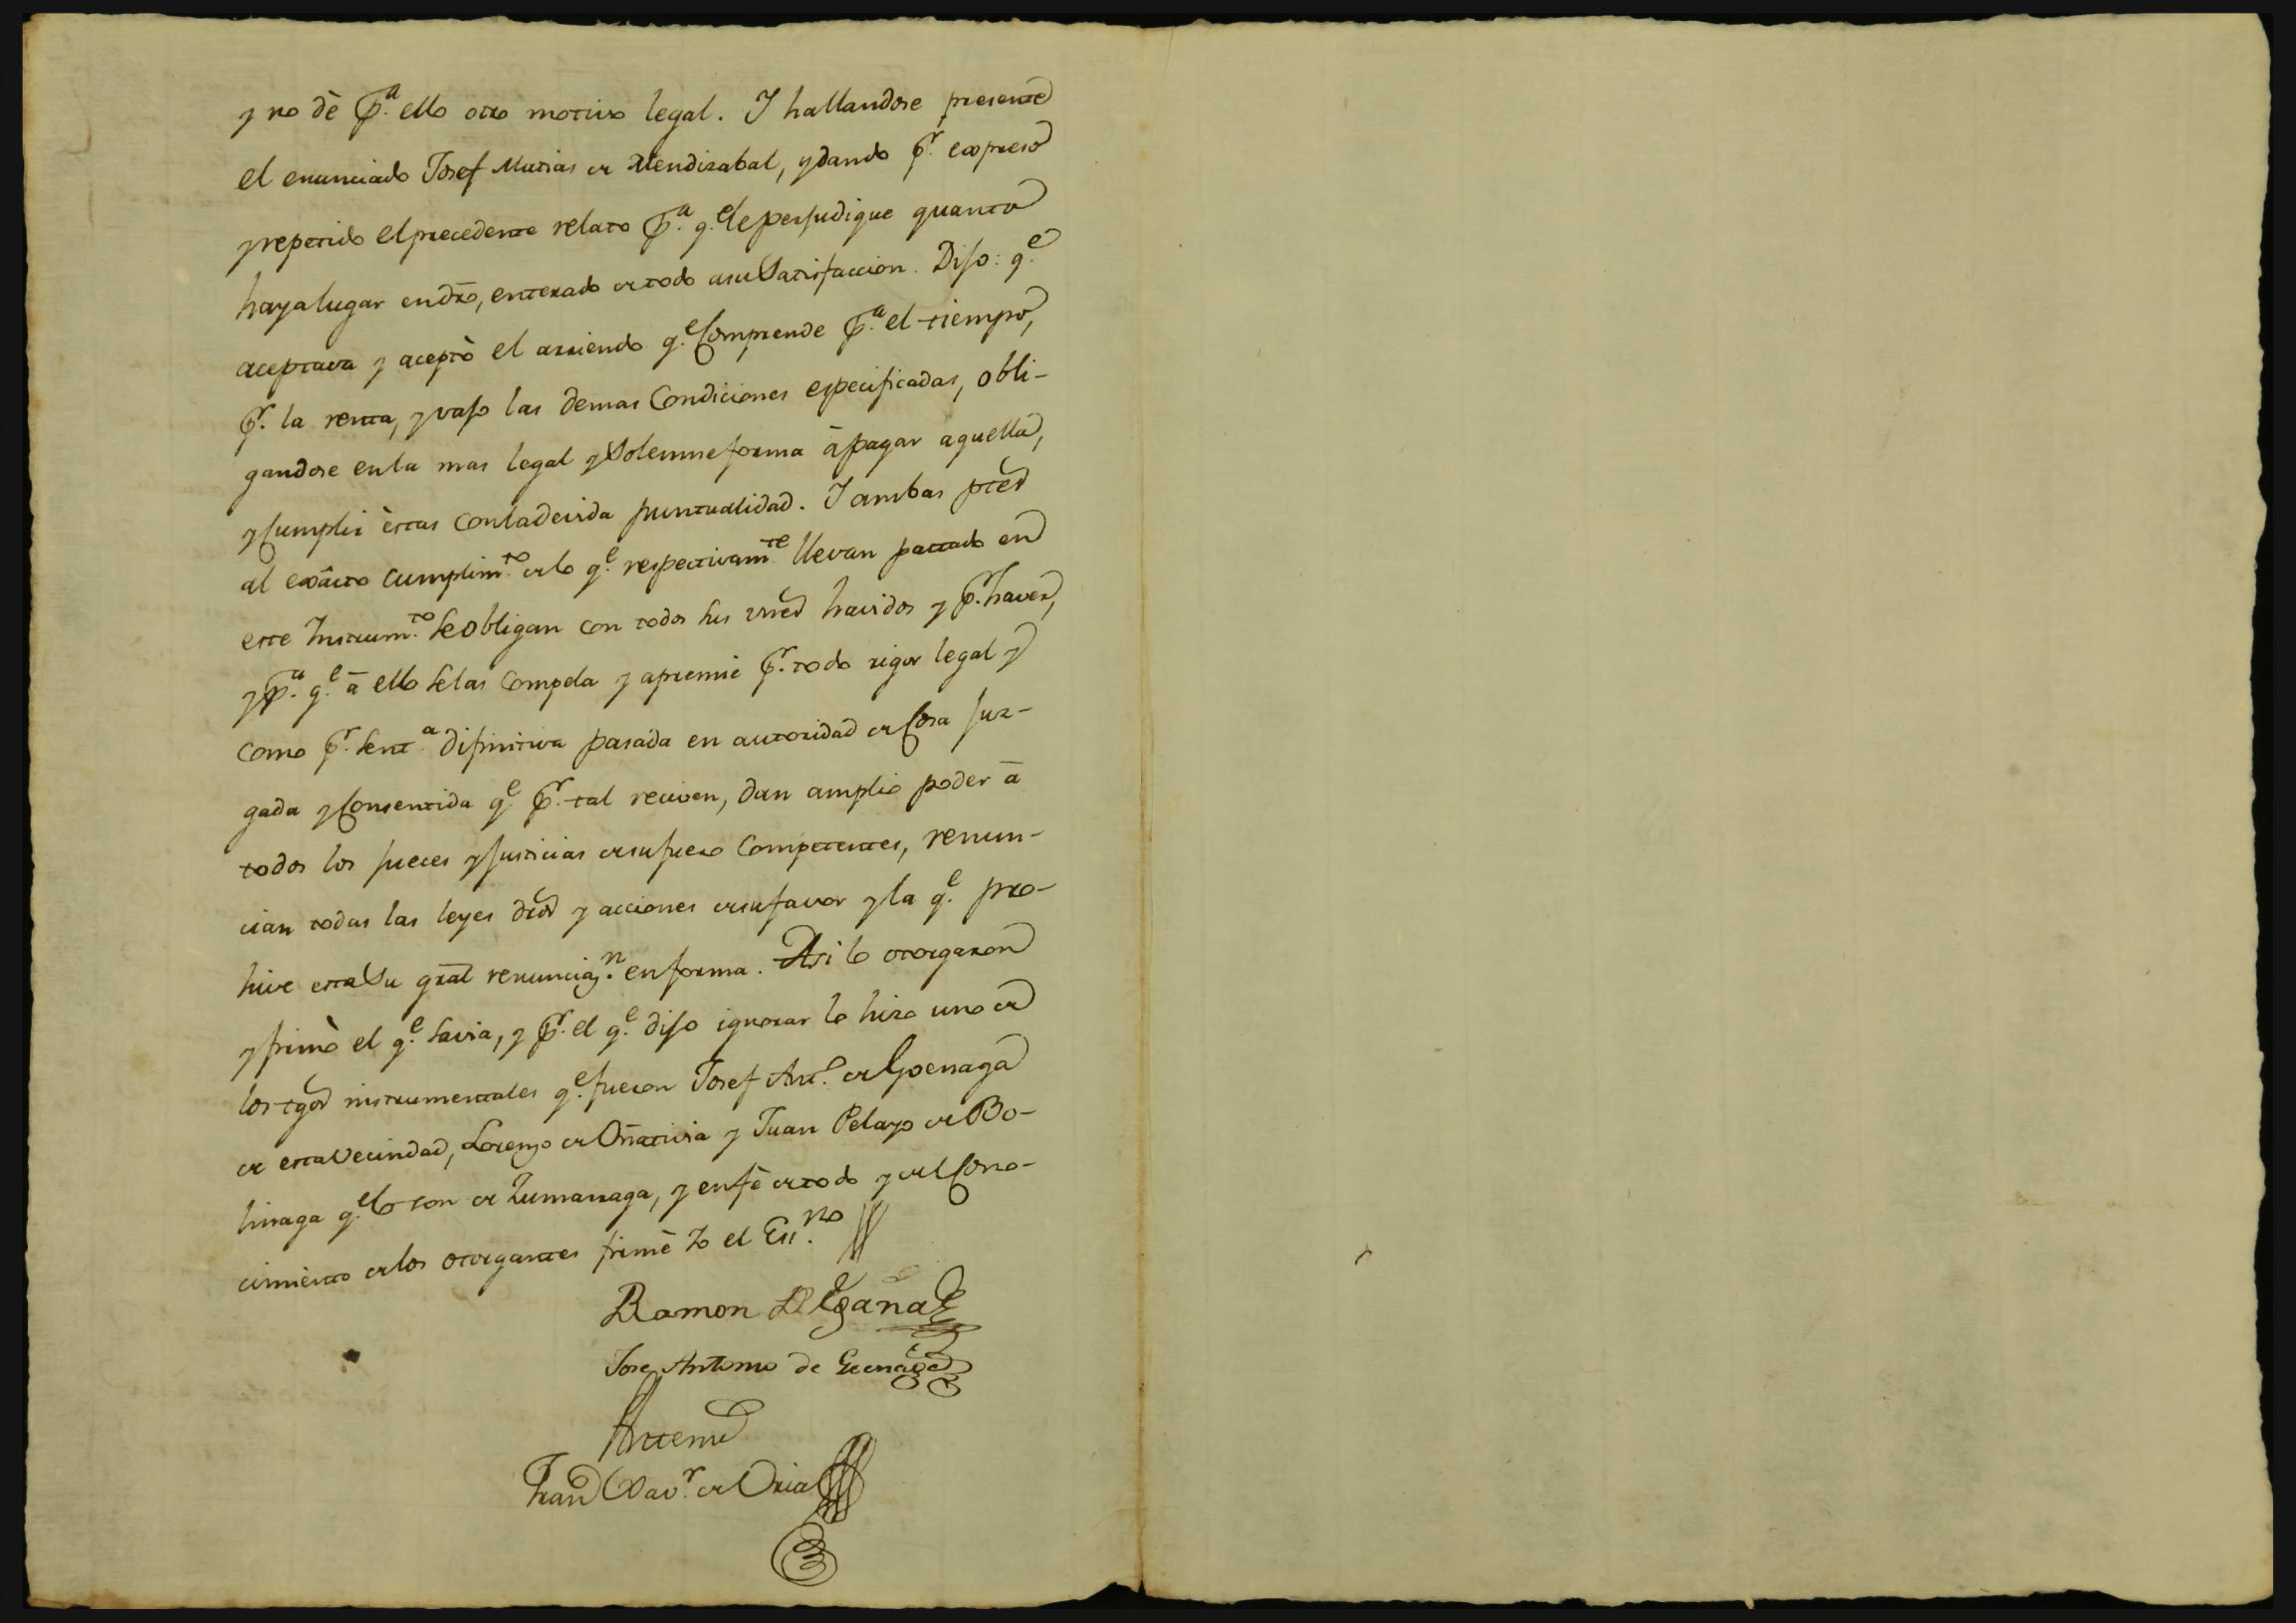 y no dè p.ª ello otro motivo legal. Y hallandose presente
el enunciado Josef Matias de Mendizabal, y dando p.r expreso
y repetido el precedente relato p.ª q.e le perjudique quanto
haya lugar en dro, enterado de todo a su Satisfaccion. Dijo: q.e
aceptava y aceptò el arriendo q.e Comprende p.ª el tiempo,
p.r la renta, y vajo las demas Condiciones especificadas, obli-
gandose en la mas legal y Solemne forma à pagar aquella,
y Cumplir èstas con la devida puntualidad. Y ambas ptes
al exàcto cumplim.to de lo q.e respectivam.te llevan pactado en
este Instrum.to Se obligan con todos sus vnes havidos y p.r haver,
y p.ª q.e à ello Se las Compela y apremie p.r todo rigor legal y
como p.r Sent.ª difinitiva pasada en autoridad de Cosa juz-
gada y Consentida q.e p.r tal reciven, dan amplio poder à
todos los jueces y justicias de su fuero Competentes, renun-
cian todas las leyes dros y acciones de su favor y la q.e pro-
hive esta Su gral renunciaz.n en forma. Asi lo otorgaron
y firmò el q.e Savia, y p.r el q.e dijo ignorar lo hizo uno de
los tgos instrumentales q.e fueron Josef Ant.o de Goenaga
de esta Vecindad, Lorenzo de Oñativia y Juan Pelayo de Bo-
hinaga q.e lo son de Zumarraga, y en fè de todo y del Cono-
cimiento de los otorgantes firmè Yo el Ess.no
Ramon de Egaña
Jose Antonio de Goenaga
Antemi
Fran Xav.r de Oria